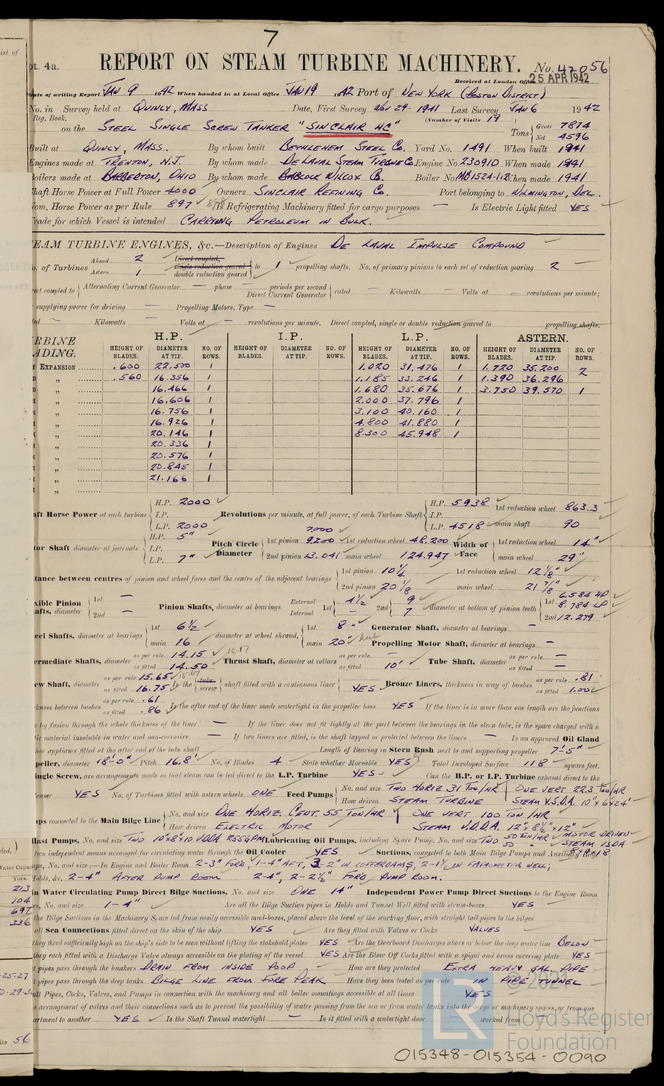 7
pt. 4a. REPORT ON STEAM TURBINE MACHINERY. No. 42056
Received at London Office 25 APR 1942
Date of writing Report JAN 9 1942 When handed in at Local Office JAN 19 1942 Port of NEW YORK (BOSTON DISTRICT)
No. in Survey held at QUINCY, MASS Date, First Survey NOV 29 - 1941 Last Survey JAN 6 1942
Reg. Book. (Number of Visits 19)
on the STEEL SINGLE SCREW TANKER "SINCLAIR HC" Tons Gross 7874 Net 4596
Built at QUINCY, MASS. By whom built BETHLEHEM STEEL Co. Yard No. 1491 When built 1941
Engines made at TRENTON, N.J. By whom made DE LAVAL STEAM TURBINE Co Engine No. 230910 When made 1941
Boilers made at BARBERTON, OHIO By whom made BABCOCK WILCOX Co Boiler No. When made 1941
Shaft Horse Power at Full Power 4000 Owners SINCLAIR REFINING Co. Port belonging to WILMINGTON, DEL.
Nom. Horse Power as per Rule 897 Is Refrigerating Machinery fitted for cargo purposes — Is Electric Light fitted YES
Trade for which Vessel is intended CARRYING PETROLEUM IN BULK.
STEAM TURBINE ENGINES, &c.—Description of Engines DE LAVAL IMPULSE COMPOUND
No. of Turbines Ahead 2 Direct coupled, single reduction geared to 1 propelling shafts. No. of primary pinions to each set of reduction gearing 2
Astern 1 double reduction geared
direct coupled to Alternating Current Generator — phase — periods per second Direct Current Generator rated — Kilowatts — Volts at — revolutions per minute;
supplying power for driving — Propelling Motors, Type —
rated — Kilowatts — Volts at — revolutions per minute. Direct coupled, single or double reduction geared to propelling shafts.
TURBINE BLADING. H.P. I.P. L.P. ASTERN.
HEIGHT OF BLADES. DIAMETER AT TIP. NO. OF ROWS. HEIGHT OF BLADES. DIAMETER AT TIP. NO. OF ROWS. HEIGHT OF BLADES. DIAMETER AT TIP. NO. OF ROWS. HEIGHT OF BLADES. DIAMETER AT TIP. NO. OF ROWS.
EXPANSION .600 22.570 1 1.020 31.476 1 1.720 35.200 2
" .560 16.356 1 1.185 33.246 1 1.390 36.296
" 16.466 1 1.680 35.676 1 3.750 39.570 1
" 16.606 1 2.000 37.796 1
" 16.756 1 3.100 40.160 1
" 16.926 1 4.800 41.880 1
" 20.146 1 8.300 45.948 1
" 20.336 1
" 20.576 1
" 20.845 1
" 21.166 1
Shaft Horse Power at each turbine H.P. 2000 I.P. L.P. 2000 Revolutions per minute, at full power, of each Turbine Shaft H.P. 5938 I.P. L.P. 4518 1st reduction wheel 863.3 main shaft 90
Rotor Shaft diameter at journals H.P. 5" I.P. L.P. 7" Pitch Circle Diameter 1st pinion 9.200 1st reduction wheel 48.200 2nd pinion 13.041 main wheel 124.947 Width of Face 1st reduction wheel 14" main wheel 29"
Distance between centres of pinion and wheel faces and the centre of the adjacent bearings 1st pinion 10¼ 2nd pinion 20⅛ 1st reduction wheel 12⅛" main wheel 21⅞"
Flexible Pinion Shafts, diameter 1st — 2nd — Pinion Shafts, diameter at bearings External 4½ 9 Internal — 7 diameter at bottom of pinion teeth 1st 6.584 HP 8.784 LP 2nd 12.279
Wheel Shafts, diameter at bearings 1st 6½ main 16 diameter at wheel shroud, 1st 8" main 20" Generator Shaft, diameter at bearings — Propelling Motor Shaft, diameter at bearings —
Intermediate Shafts, diameter as per rule 14.15 as fitted 14.50 Thrust Shaft, diameter at collars as per rule — as fitted 10" Tube Shaft, diameter as per rule — as fitted —
Screw Shaft, diameter as per rule 15.65 as fitted 16.75 Is the tube screw shaft fitted with a continuous liner YES Bronze Liners, thickness in way of bushes as per rule .81 as fitted 1.00
thickness between bushes as per rule .61 as fitted .86 Is the after end of the liner made watertight in the propeller boss YES If the liner is in more than one length are the junctions
made by fusion through the whole thickness of the liner — If the liner does not fit tightly at the part between the bearings in the stern tube, is the space charged with a
plastic material insoluble in water and non-corrosive — If two liners are fitted, is the shaft lapped or protected between the liners — Is an approved Oil Gland
or other appliance fitted at the after end of the tube shaft Length of Bearing in Stern Bush next to and supporting propeller 7'-5"
Propeller, diameter 18'-0" Pitch 16.8' No. of Blades 4 State whether Moveable YES Total Developed Surface 118 square feet.
If Single Screw, are arrangements made so that steam can be led direct to the L.P. Turbine YES Can the H.P. or I.P. Turbine exhaust direct to the
Condenser YES No. of Turbines fitted with astern wheels ONE Feed Pumps No. and size TWO HORIZ 31 TON/HR ONE VERT 22.3 TON/HR How driven STEAM TURBINE STEAM V.S.D.A. 10"x6"x24"
Pumps connected to the Main Bilge Line No. and size ONE HORIZ. CENT. 55 TON/HR ONE VERT 100 TON/HR How driven ELECTRIC MOTOR STEAM V.D.D.A. 12"x8½"x12"
Ballast Pumps, No. and size TWO 10"x8"x10 VDDA 255GPM Lubricating Oil Pumps, including Spare Pump, No. and size TWO 50 TON/HR MOTOR DRIVEN STEAM VSDA
Are two independent means arranged for circulating water through the Oil Cooler YES Suctions, connected to both Main Bilge Pumps and Auxiliary
Pumps, No. and size:—In Engine and Boiler Room 2-3" FOR'D, 1-4" AFT, 3-2" IN COFFERDAMS, 2-1½ IN FATHOMETER WELL;
Holds, &c. 2-4" AFTER PUMP ROOM 2-4", 2-2½" FOR'D PUMP ROOM.
Main Water Circulating Pump Direct Bilge Suctions, No. and size ONE 14" Independent Power Pump Direct Suctions to the Engine Room
Bilges, No. and size 1-4" Are all the Bilge Suction pipes in Holds and Tunnel Well fitted with strum-boxes YES
Are the Bilge Suctions in the Machinery Space led from easily accessible mud-boxes, placed above the level of the working floor, with straight tail pipes to the bilges
Are all Sea Connections fitted direct on the skin of the ship YES Are they fitted with Valves or Cocks VALVES
Are they fixed sufficiently high on the ship's side to be seen without lifting the stokehold plates YES Are the Overboard Discharges above or below the deep water line BELOW
Are they each fitted with a Discharge Valve always accessible on the plating of the vessel YES Are the Blow Off Cocks fitted with a spigot and brass covering plate YES
What pipes pass through the bunkers DRAIN FROM INSIDE POOP How are they protected EXTRA HEAVY GAL PIPE
What pipes pass through the deep tanks BILGE LINE FROM FORE PEAK Have they been tested as per rule IN PIPE TUNNEL
Are all Pipes, Cocks, Valves, and Pumps in connection with the machinery and all boiler mountings accessible at all times YES
Is the arrangement of valves and their connections such as to prevent the possibility of water passing from the sea or from water tanks into the cargo or machinery spaces, or from one
compartment to another YES Is the Shaft Tunnel watertight — Is it fitted with a watertight door — worked from
© 2020
LR
Lloyd's Register
Foundation
015348-015354-0090